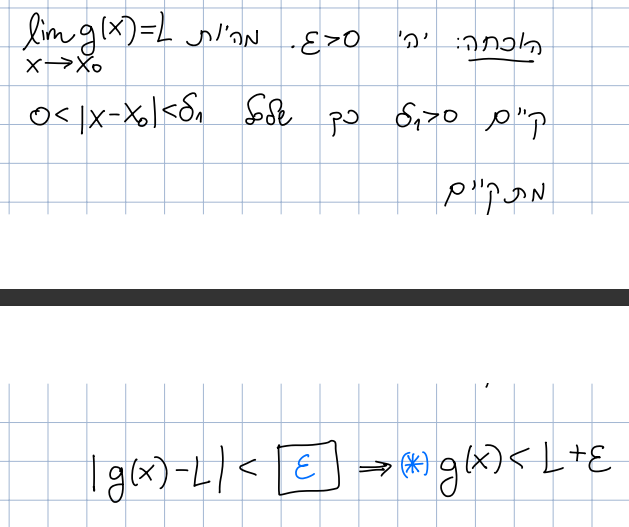 הוכחה: יהי ε>0. מהיות lim g(x)=L
x→x₀
קיים δ₁>0 כך שלכל 0<|x-x₀|<δ₁
מתקיים
|g(x)-L| < ε ⇒ (*) g(x) < L+ε